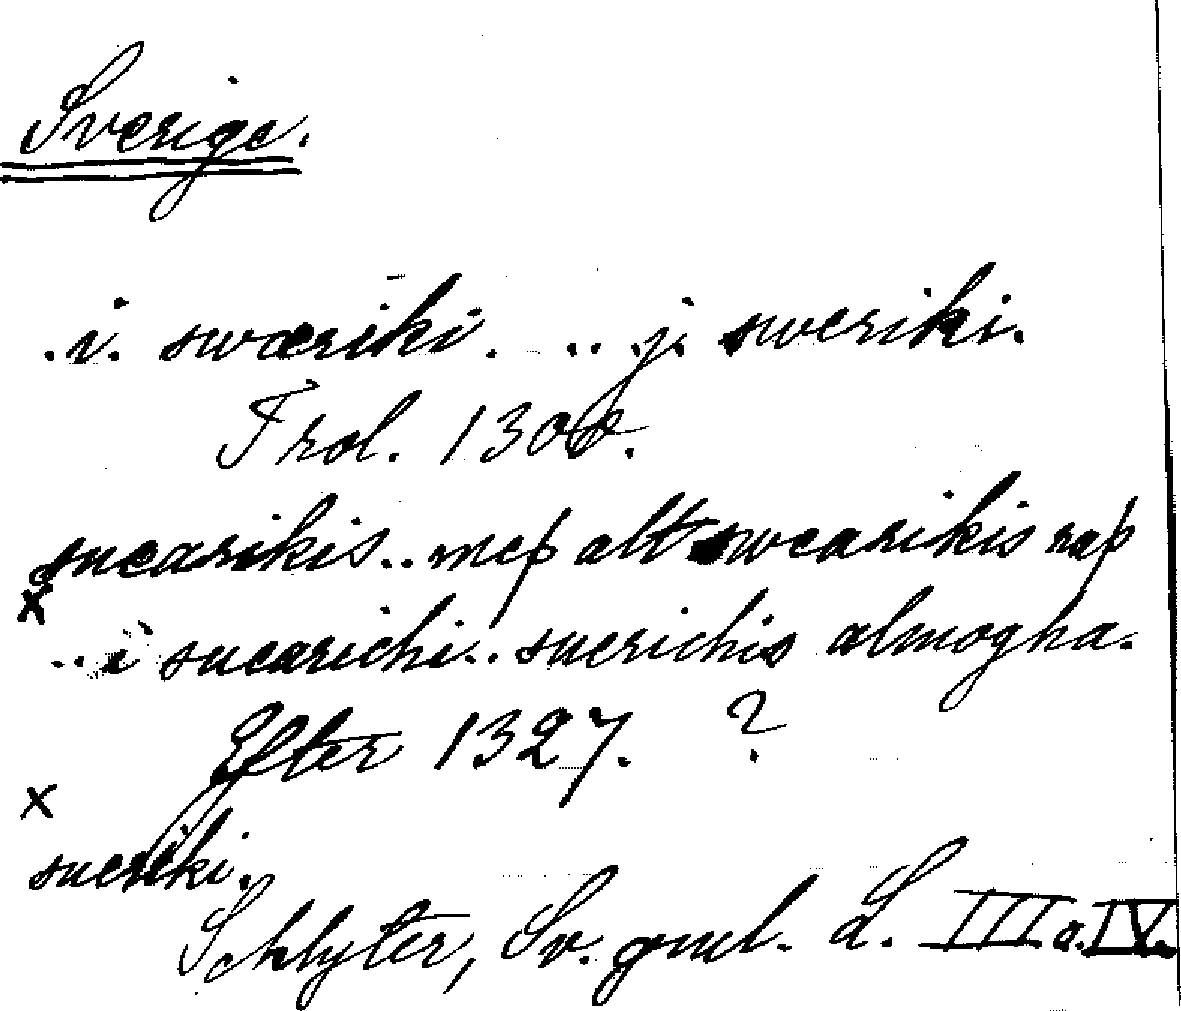 Sverige.
.i. swæriki. .. j. sweriki.
Trol. 1300.
suearikis.. meþ alt swearikis raþ
x
.. i suearichi.. suerichis almogha.
Efter 1327. ?
x
sueriki.
Schlyter, Sv. gml. L. III o. IV.